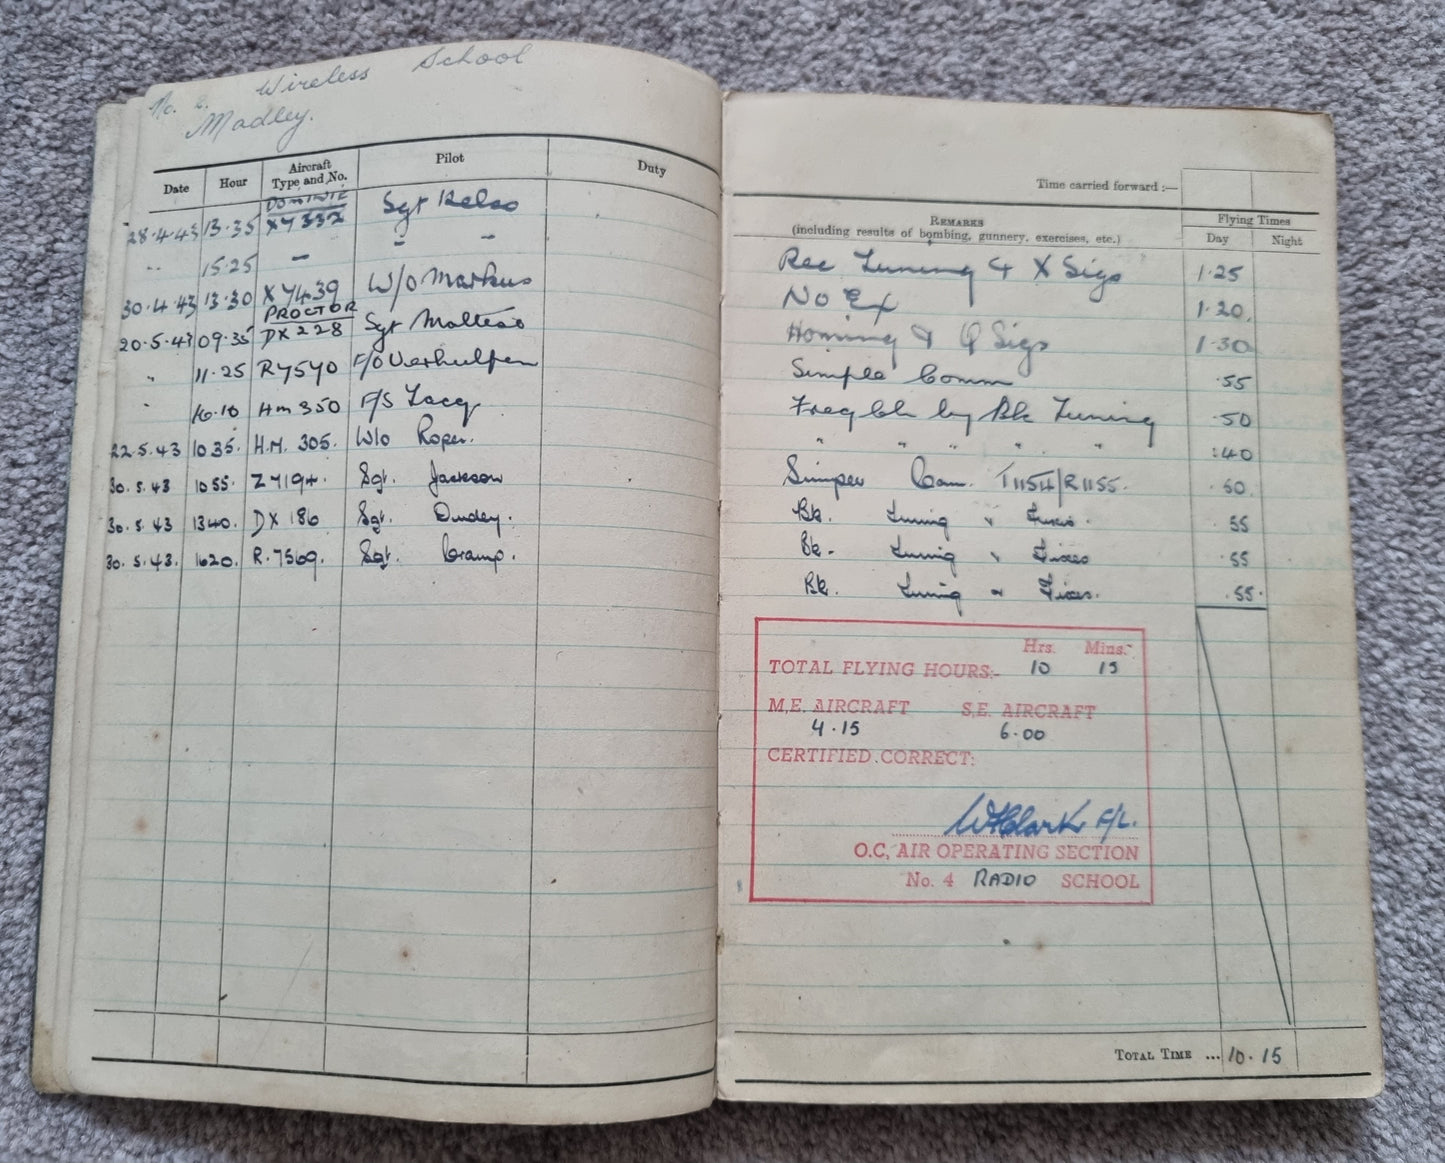 No. 2. Wireless School
Madley.
Date Hour Aircraft Type and No. Pilot Duty
28.4.43 13.35 DOMINIE X7332 Sgt Kelso
" 15.25 - - -
30.4.43 13.30 X7439 W/O Markus
20.5.43 09.35 PROCTOR DX228 Sgt
" 11.25 R7570 F/O Verhulpen
" 16.10 Hm350 F/S Lacq
22.5.43 1035. H.M. 305. W/o Roper.
30.5.43 1055. Z7194. Sgt. Jackson
30.5.43 1340. DX 186 Sgt. Dudley.
30.5.43. 1620. R.7569. Sgt. Cramp.
Time carried forward :—
REMARKS
(including results of bombing, gunnery, exercises, etc.)
Flying Times
Day Night
Rec Tuning & X Sigs 1.25
No Ex 1.20.
Homing & Q Sigs 1.30
Simple Comm .55
by Bk Tuning .50
" " " " " :40
Comm. T1154/R1155. .50.
Bk. Tuning & Fixes. .55
Bk. Tuning & Fixes .55
Bk. Tuning & Fixes. .55.
Hrs. Mins.
TOTAL FLYING HOURS:- 10 15
M.E. AIRCRAFT S.E. AIRCRAFT
4.15 6.00
CERTIFIED CORRECT:
WHClark F/L.
O.C, AIR OPERATING SECTION
No. 4 RADIO SCHOOL
TOTAL TIME ... 10.15